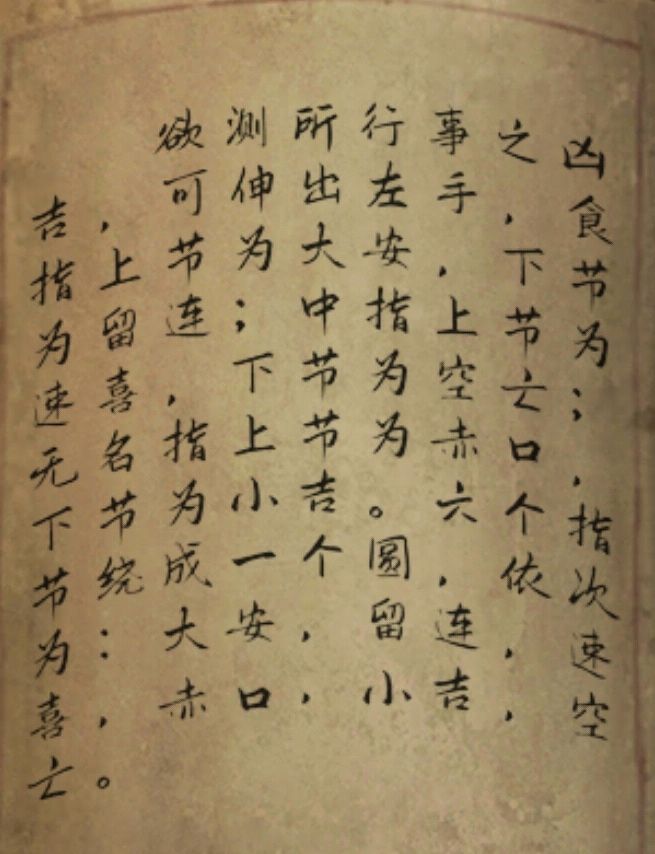 欲测所行事之凶
吉，可伸出左手，食
指上节为大安，下节
为留连；中指上节为
速喜，下节为空亡；
无名指上节为赤口，
下节为小吉。六个指
节绕成一个圆，依次
为：大安，留连，速
喜，赤口，小吉，空
亡。